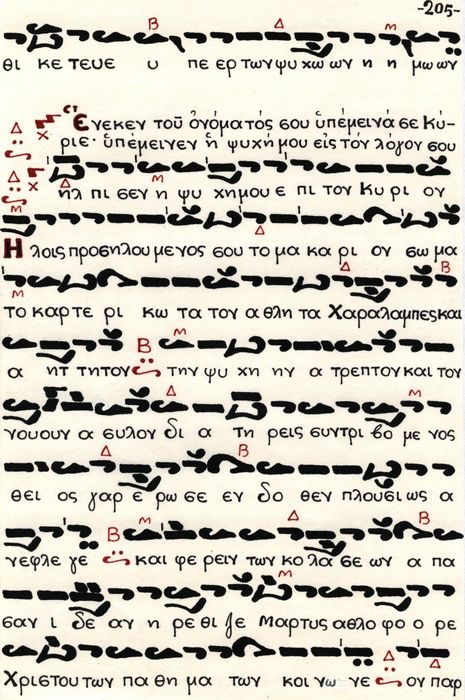 -205-
Β Δ Μ
θι κε τευε υ πε ερ των ψυ χω ων η η μω ων
Ἕνεκεν τοῦ ὀνόματός σου ὑπέμεινά σε Κύ-
ριε· ὑπέμεινεν ἡ ψυχή μου εἰς τὸν λόγον σου
ηλ πι σεν η ψυ χη μου ε πι τον Κυ ρι ον
Η λοις προσηλου με νος σου το μα κα ρι ον σω μα
το καρτε ρι κω τα τον α θλη τα Χαραλαμπες και
α ητ τη τον την ψυ χη ην α τρεπτον και τον
νουουν α συλον δι α τη ρεις συντρι βο με νος
θει ος γαρ ε ρω σε εν δο θεν πλουσιως α
νεφλε γε και φε ρειν των κο λα σε ων α πα
σαν ι δε αν η ρε θι ζε Μαρτυς αθλο φο ο ρε
Χριστου των πα θη μα των κοι νω νε ου παρ